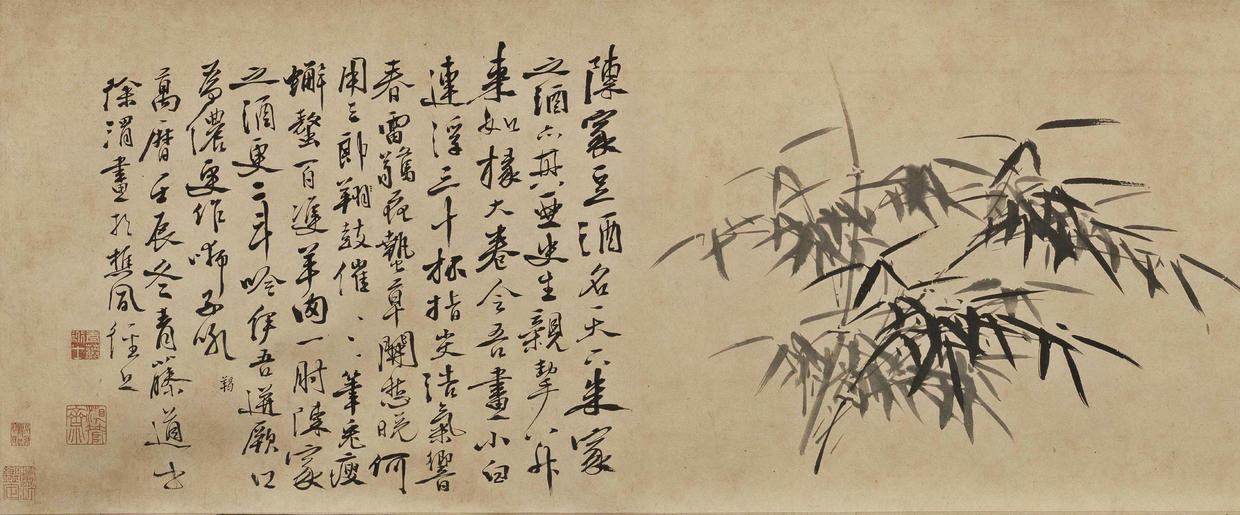 陳家豆酒名天下朱家
之酒亦其亞史生親挈八升
來如椽大卷令吾畫小白
連浮三十杯指尖浩氣響
春雷驚花蟄草開愁晚何
用三郎翔鼓催〻〻筆兔瘦
蟹螯百雙羊肉一肘陳家
之酒更二斗吟伊吾迸厥口
為儂更作獅子吼 羯
萬曆壬辰冬青藤道士
徐渭畫於樵風徑上